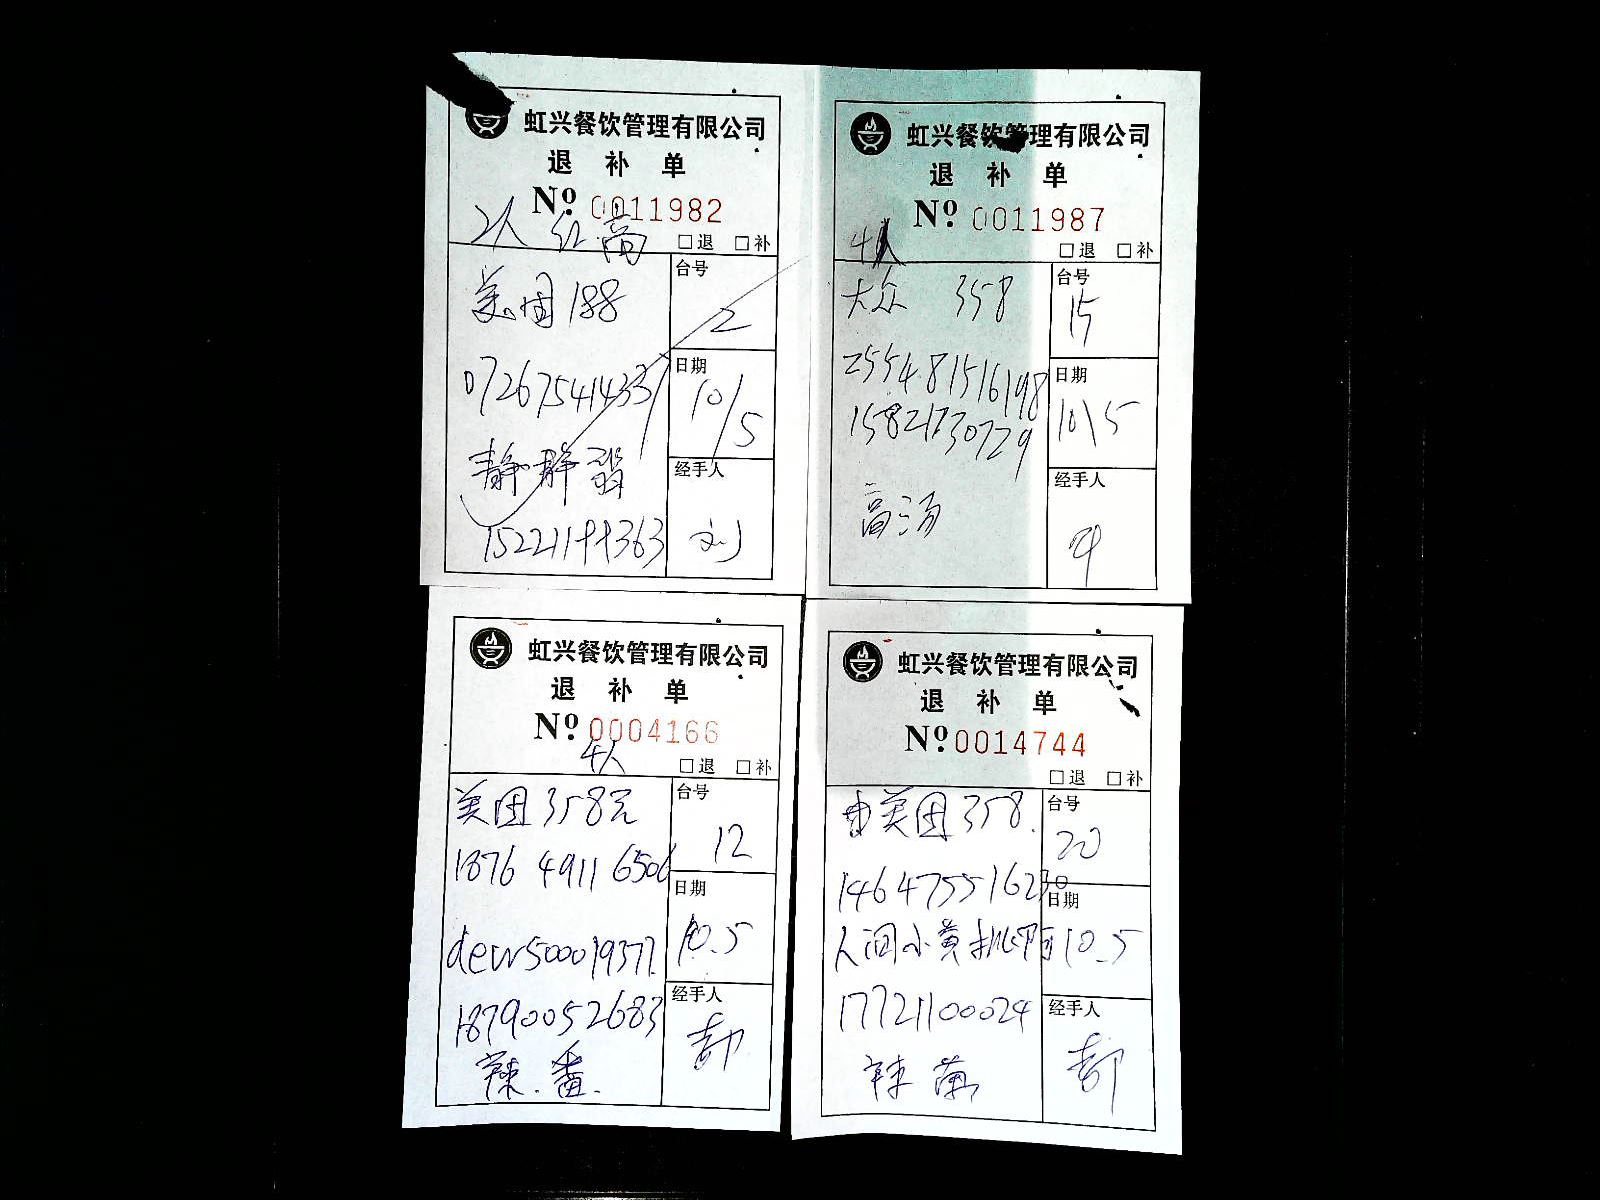 虹兴餐饮管理有限公司
退 补 单
Nº 0011982
2人 红 高
□退 □补
美团 188
台号
2
072675414331
日期
10/5
静静
15221144363
经手人
刘
虹兴餐饮管理有限公司
退 补 单
Nº 0011987
4人
□退 □补
大众 358
台号
15
255481516198
15821730729
日期
10\5
高汤
经手人
虹兴餐饮管理有限公司
退 补 单
Nº 0004166
4人
□退 □补
美团358元
台号
12
1876 4911 6506
日期
10.5
dewr500019377.
18790052683
经手人
辣.番.
郝
虹兴餐饮管理有限公司
退 补 单
Nº 0014744
□退 □补
美团358.
台号
20
1464755516230
日期
10.5
人间小黄
17721100024
经手人
辣 菌
郝